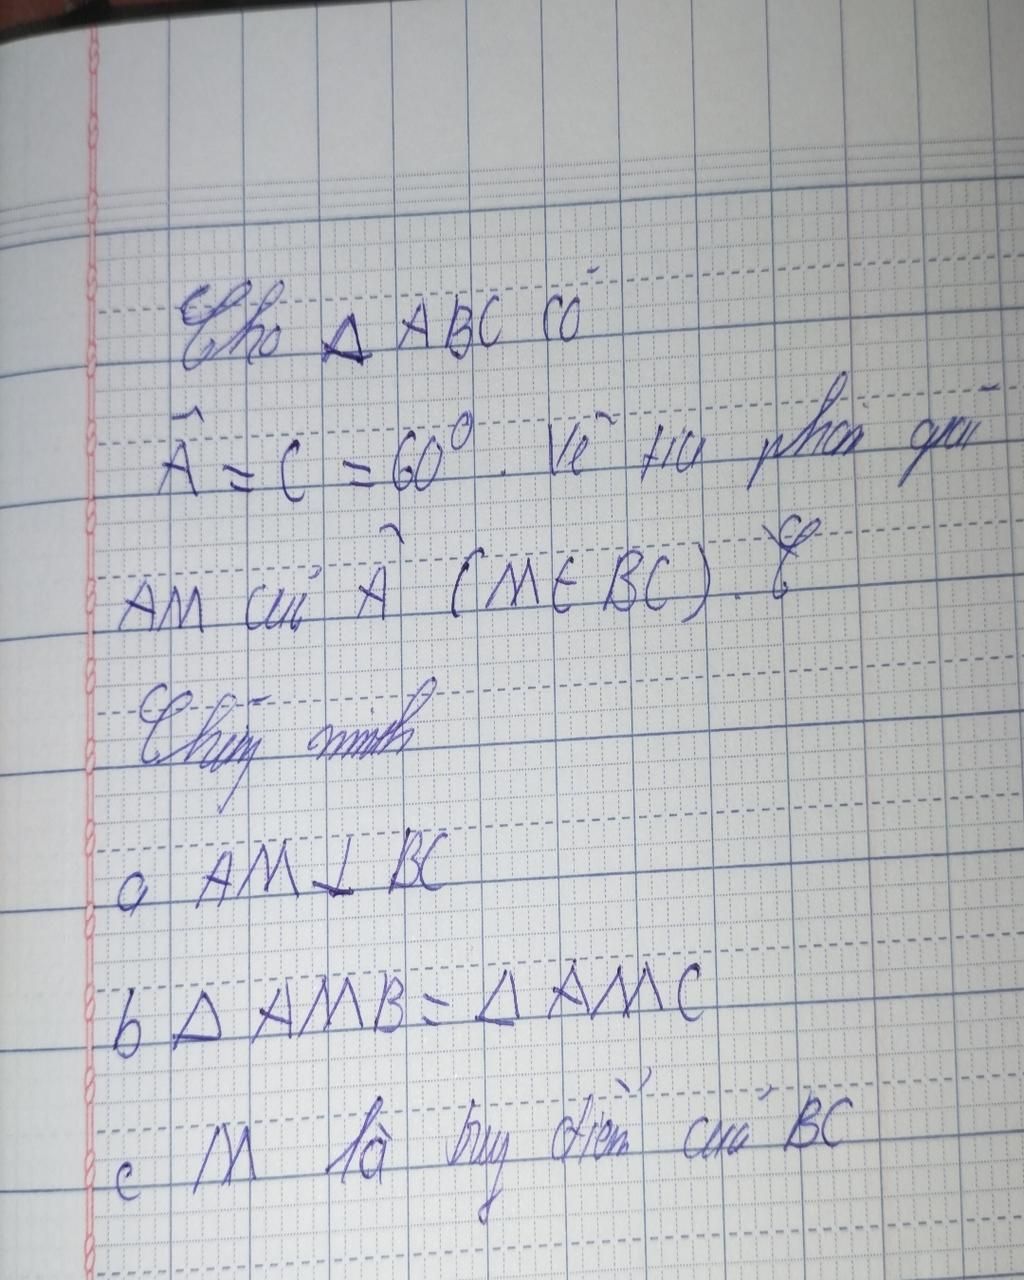 Cho Δ ABC có
Â = C = 60⁰. Vẽ tia phân giác
AM của Â (M ∈ BC).
Chứng minh
a AM ⊥ BC
b Δ AMB = Δ AMC
c M là trung điểm của BC